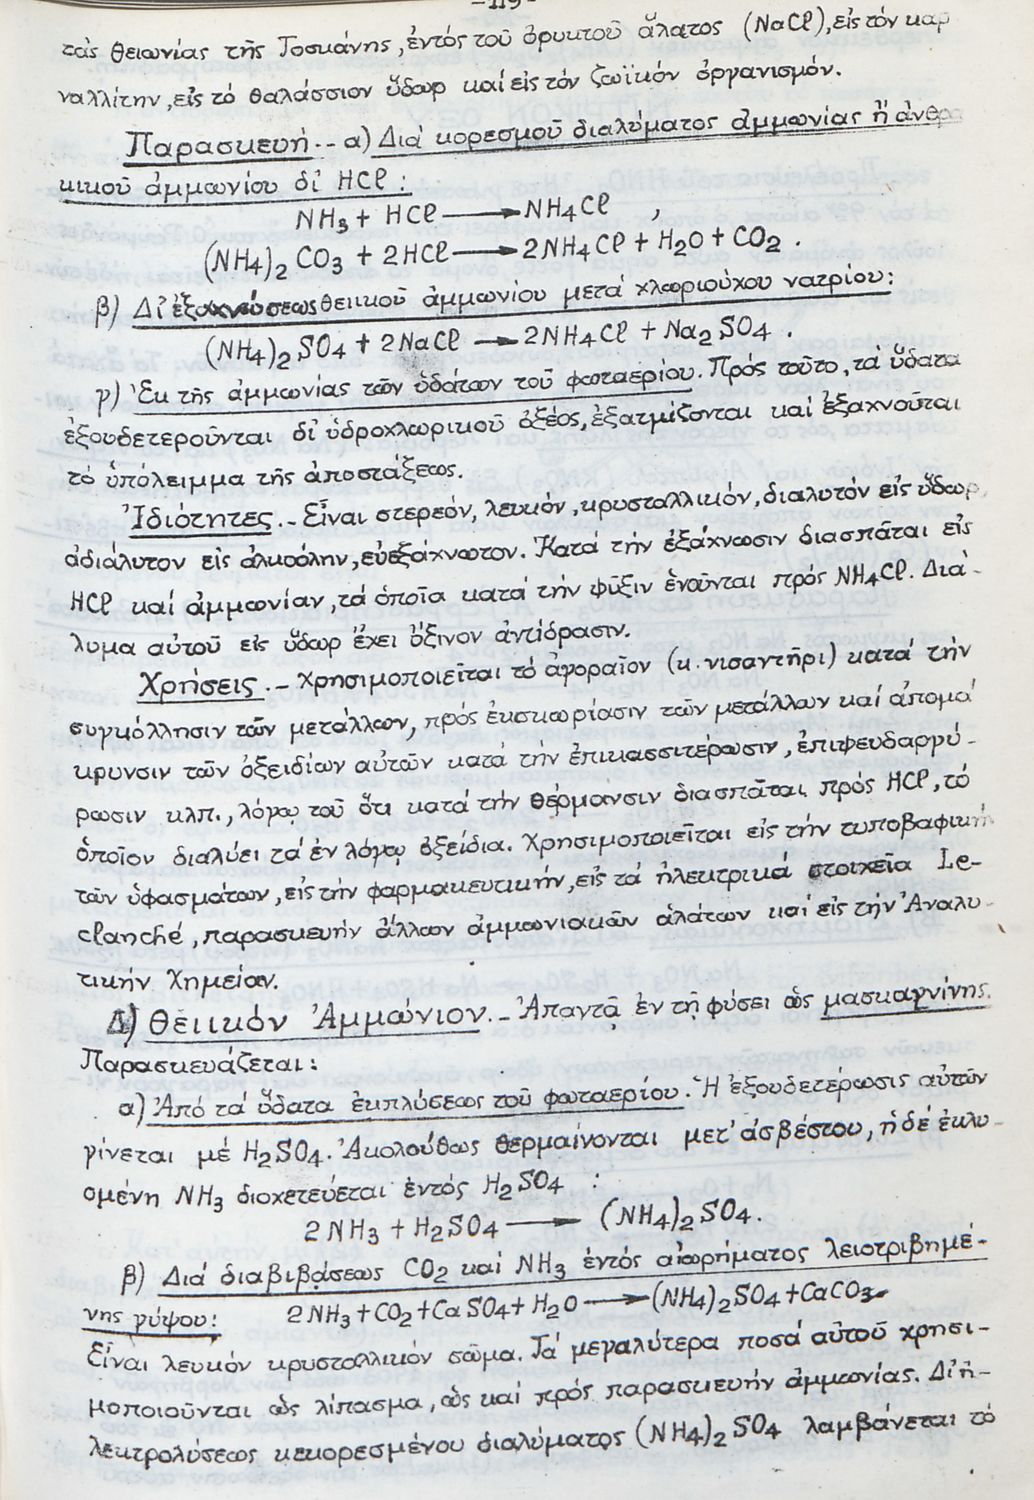 -119-
τὰς θειωνίας τῆς Τοσκάνης, ἐντός τοῦ ὀρυκτοῦ ἅλατος (NaCl), εἰς τόν καρ
ναλλίτην, εἰς τό θαλάσσιον ὕδωρ καί εἰς τόν ζωϊκόν ὀργανισμόν.
Παρασκευή.- α) Διά κορεσμοῦ διαλύματος ἀμμωνίας ἤ ἀνθρα
κικοῦ ἀμμωνίου δι' HCl :
NH3 + HCl ⟶ NH4Cl ,
(NH4)2 CO3 + 2HCl ⟶ 2NH4Cl + H2O + CO2 .
β) Δι' ἐξαχνώσεως θειικοῦ ἀμμωνίου μετά χλωριούχου νατρίου:
(NH4)2 SO4 + 2NaCl ⟶ 2NH4Cl + Na2 SO4 .
γ) Ἐκ τῆς ἀμμωνίας τῶν ὑδάτων τοῦ φωταερίου. Πρός τοῦτο, τά ὕδατα
ἐξουδετεροῦνται δι' ὑδροχλωρικοῦ ὀξέος, ἐξατμίζονται καί ἐξαχνοῦται
τό ὑπόλειμμα τῆς ἀποστάξεως.
Ἰδιότητες.- Εἶναι στερεόν, λευκόν, κρυσταλλικόν, διαλυτόν εἰς ὕδωρ,
ἀδιάλυτον εἰς ἀλκοόλην, εὐεξάχνωτον. Κατά τήν ἐξάχνωσιν διασπᾶται εἰς
HCl καί ἀμμωνίαν, τά ὁποῖα κατά τήν ψῦξιν ἑνοῦνται πρός NH4Cl. Διά-
λυμα αὐτοῦ εἰς ὕδωρ ἔχει ὄξινον ἀντίδρασιν.
Χρήσεις.- Χρησιμοποιεῖται τό ἀγοραῖον (κ. νισαντῆρι) κατά τήν
συγκόλλησιν τῶν μετάλλων, πρός ἐκσκωρίασιν τῶν μετάλλων καί ἀπομά
κρυνσιν τῶν ὀξειδίων αὐτῶν κατά τήν ἐπικασσιτέρωσιν, ἐπιψευδαργύ-
ρωσιν κλπ., λόγῳ τοῦ ὅτι κατά τήν θέρμανσιν διασπᾶται πρός HCl, τό
ὁποῖον διαλύει τά ἐν λόγῳ ὀξείδια. Χρησιμοποιεῖται εἰς τήν τυποβαφικήν
τῶν ὑφασμάτων, εἰς τήν φαρμακευτικήν, εἰς τά ἠλεκτρικά στοιχεῖα Le-
clanché, παρασκευήν ἄλλων ἀμμωνιακῶν ἁλάτων καί εἰς τήν Ἀναλυ-
τικήν Χημείαν.
Δ) Θειικόν Ἀμμώνιον.- Ἀπαντᾷ ἐν τῇ φύσει ὡς μασκαγνίνης.
Παρασκευάζεται:
α) Ἀπό τά ὕδατα ἐκπλύσεως τοῦ φωταερίου. Ἡ ἐξουδετέρωσις αὐτῶν
γίνεται μέ H2SO4. Ἀκολούθως θερμαίνονται μετ' ἀσβέστου, ἡ δέ ἐκλυ-
ομένη NH3 διοχετεύεται ἐντός H2SO4 :
2NH3 + H2SO4 ⟶ (NH4)2 SO4.
β) Διά διαβιβάσεως CO2 καί NH3 ἐντός αἰωρήματος λειοτριβημέ-
νης γύψου: 2NH3 + CO2 + CaSO4 + H2O ⟶ (NH4)2 SO4 + CaCO3.
Εἶναι λευκόν κρυσταλλικόν σῶμα. Τά μεγαλύτερα ποσά αὐτοῦ χρησι-
μοποιοῦνται ὡς λίπασμα, ὡς καί πρός παρασκευήν ἀμμωνίας. Δι' ἠ-
λεκτρολύσεως κεκορεσμένου διαλύματος (NH4)2 SO4 λαμβάνεται τό